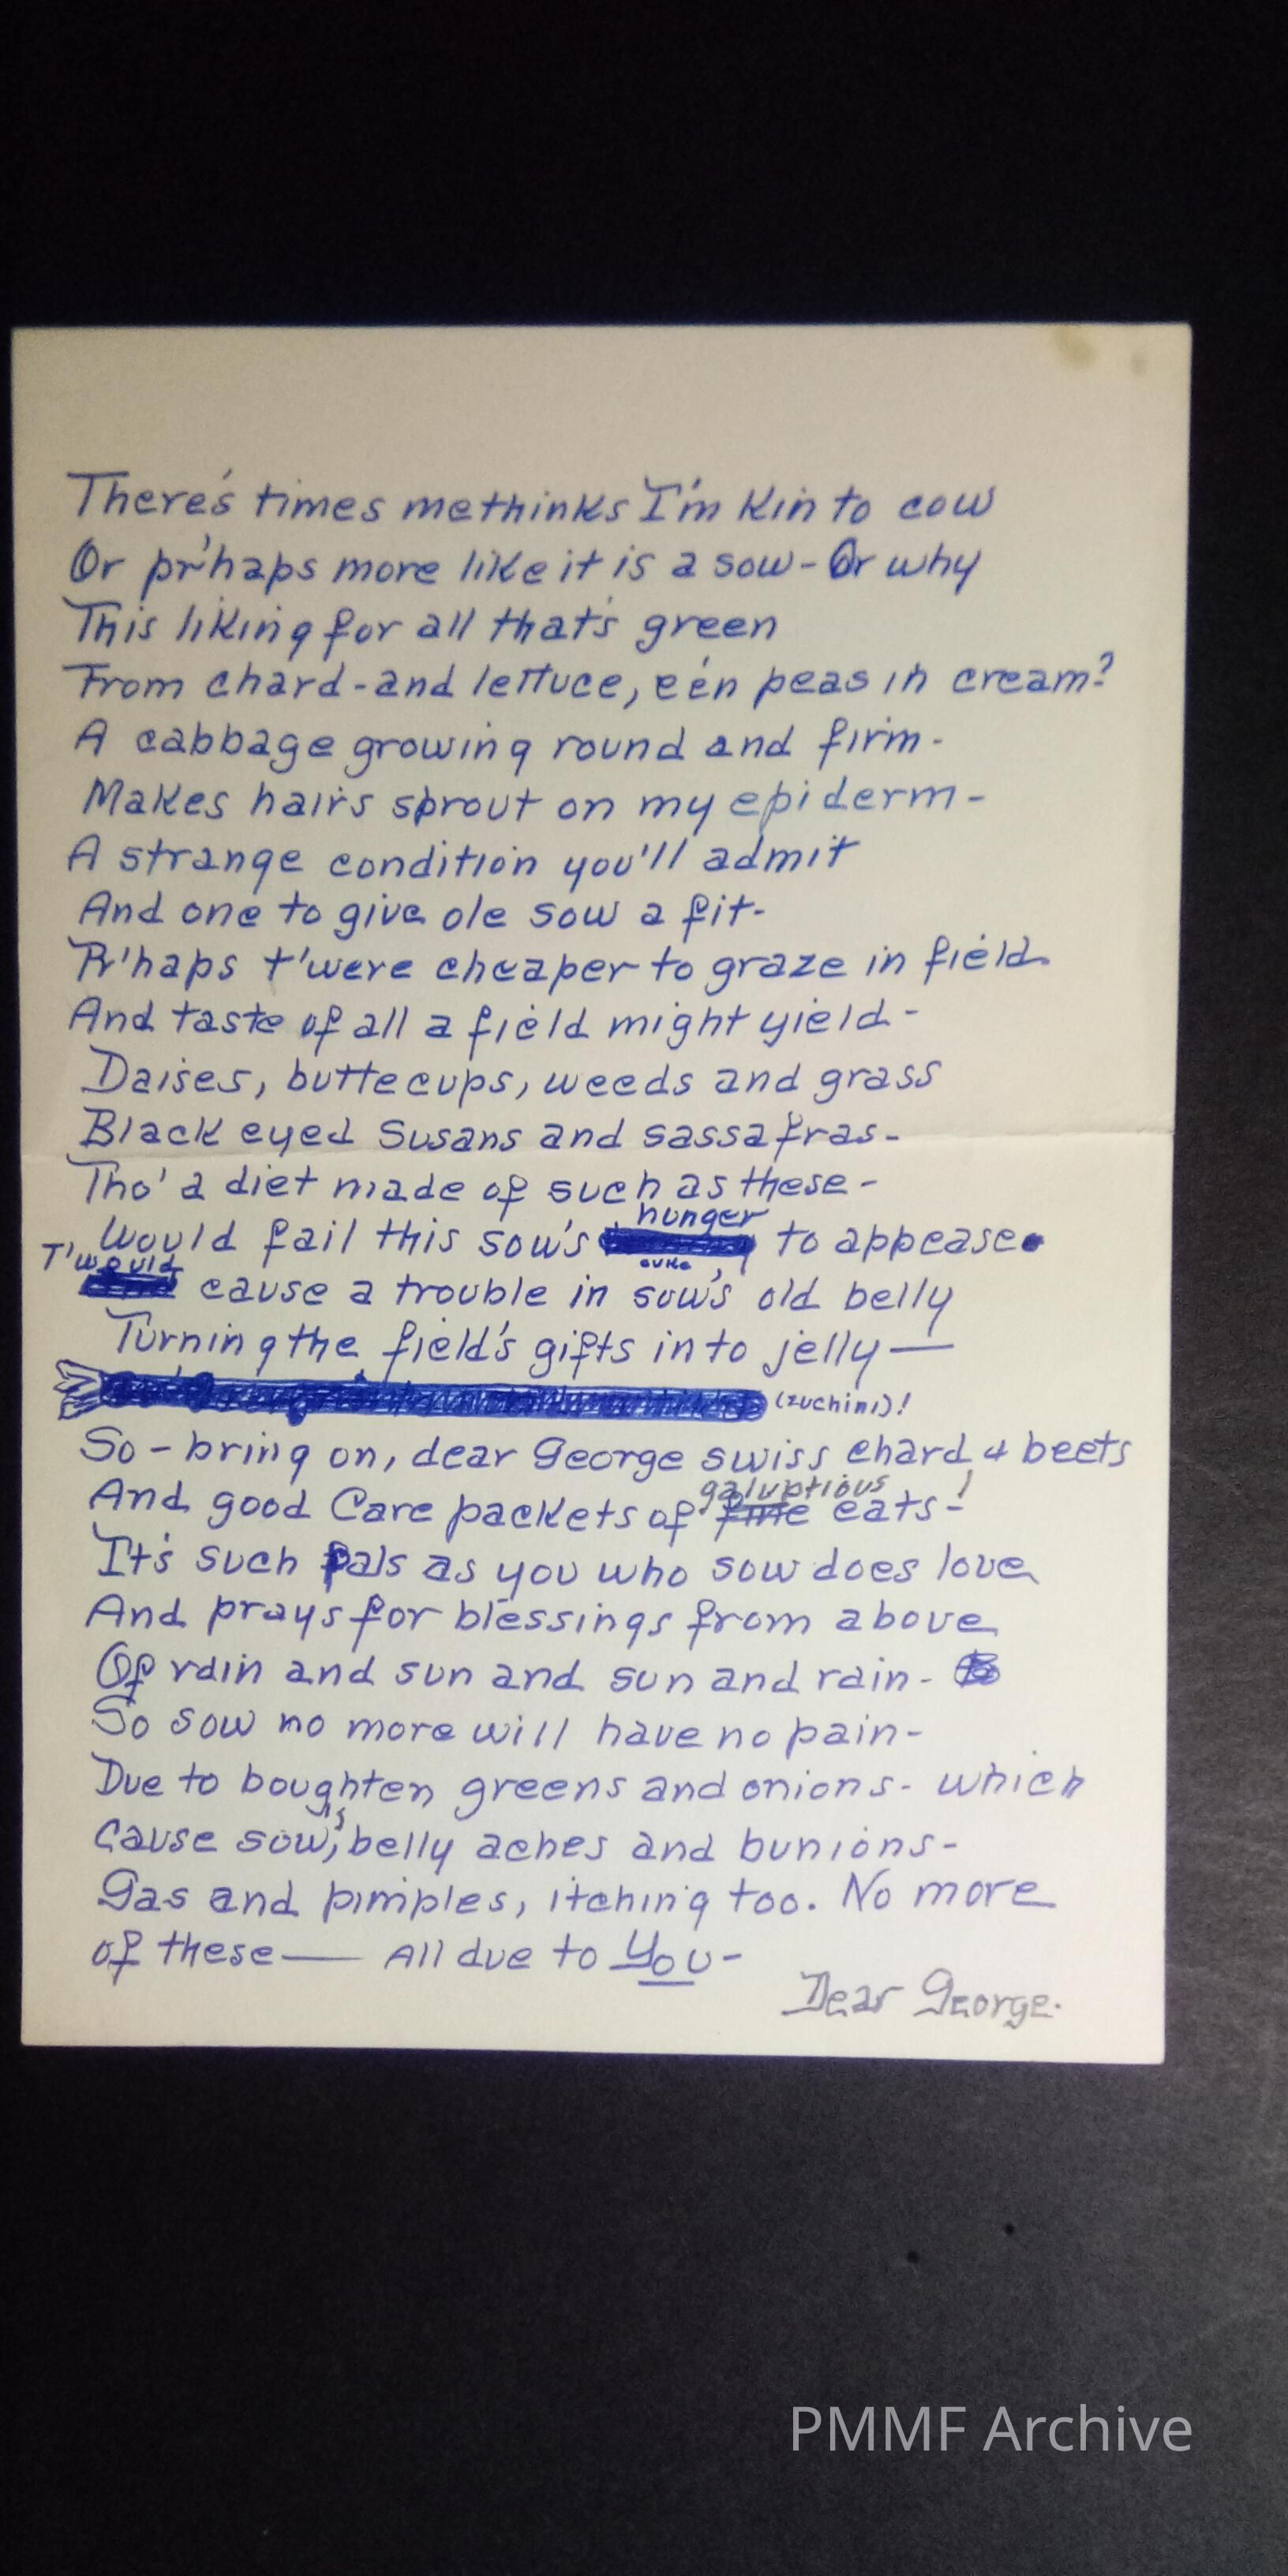 There's times methinks I'm kin to cow
Or pr'haps more like it is a sow - Or why
This liking for all that's green
From chard - and lettuce, e'en peas in cream?
A cabbage growing round and firm -
Makes hairs sprout on my epiderm -
A strange condition you'll admit
And one to give ole sow a fit -
Pr'haps t'were cheaper to graze in field
And taste of all a field might yield -
Daises, buttecups, weeds and grass
Black eyed Susans and sassafras -
Tho' a diet made of such as these -
hunger
Would fail this sow's to appease.
T'would cause a trouble in sow's old belly
Turning the field's gifts into jelly —
(zuchini)!
So - bring on, dear George swiss chard & beets
galuptious
And good Care packets of fine eats - !
It's such pals as you who sow does love
And prays for blessings from above
Of rain and sun and sun and rain -
So sow no more will have no pain -
Due to boughten greens and onions - which
Cause sow's belly aches and bunions -
Gas and pimples, itching too. No more
of these — All due to You -
Dear George.
PMMF Archive